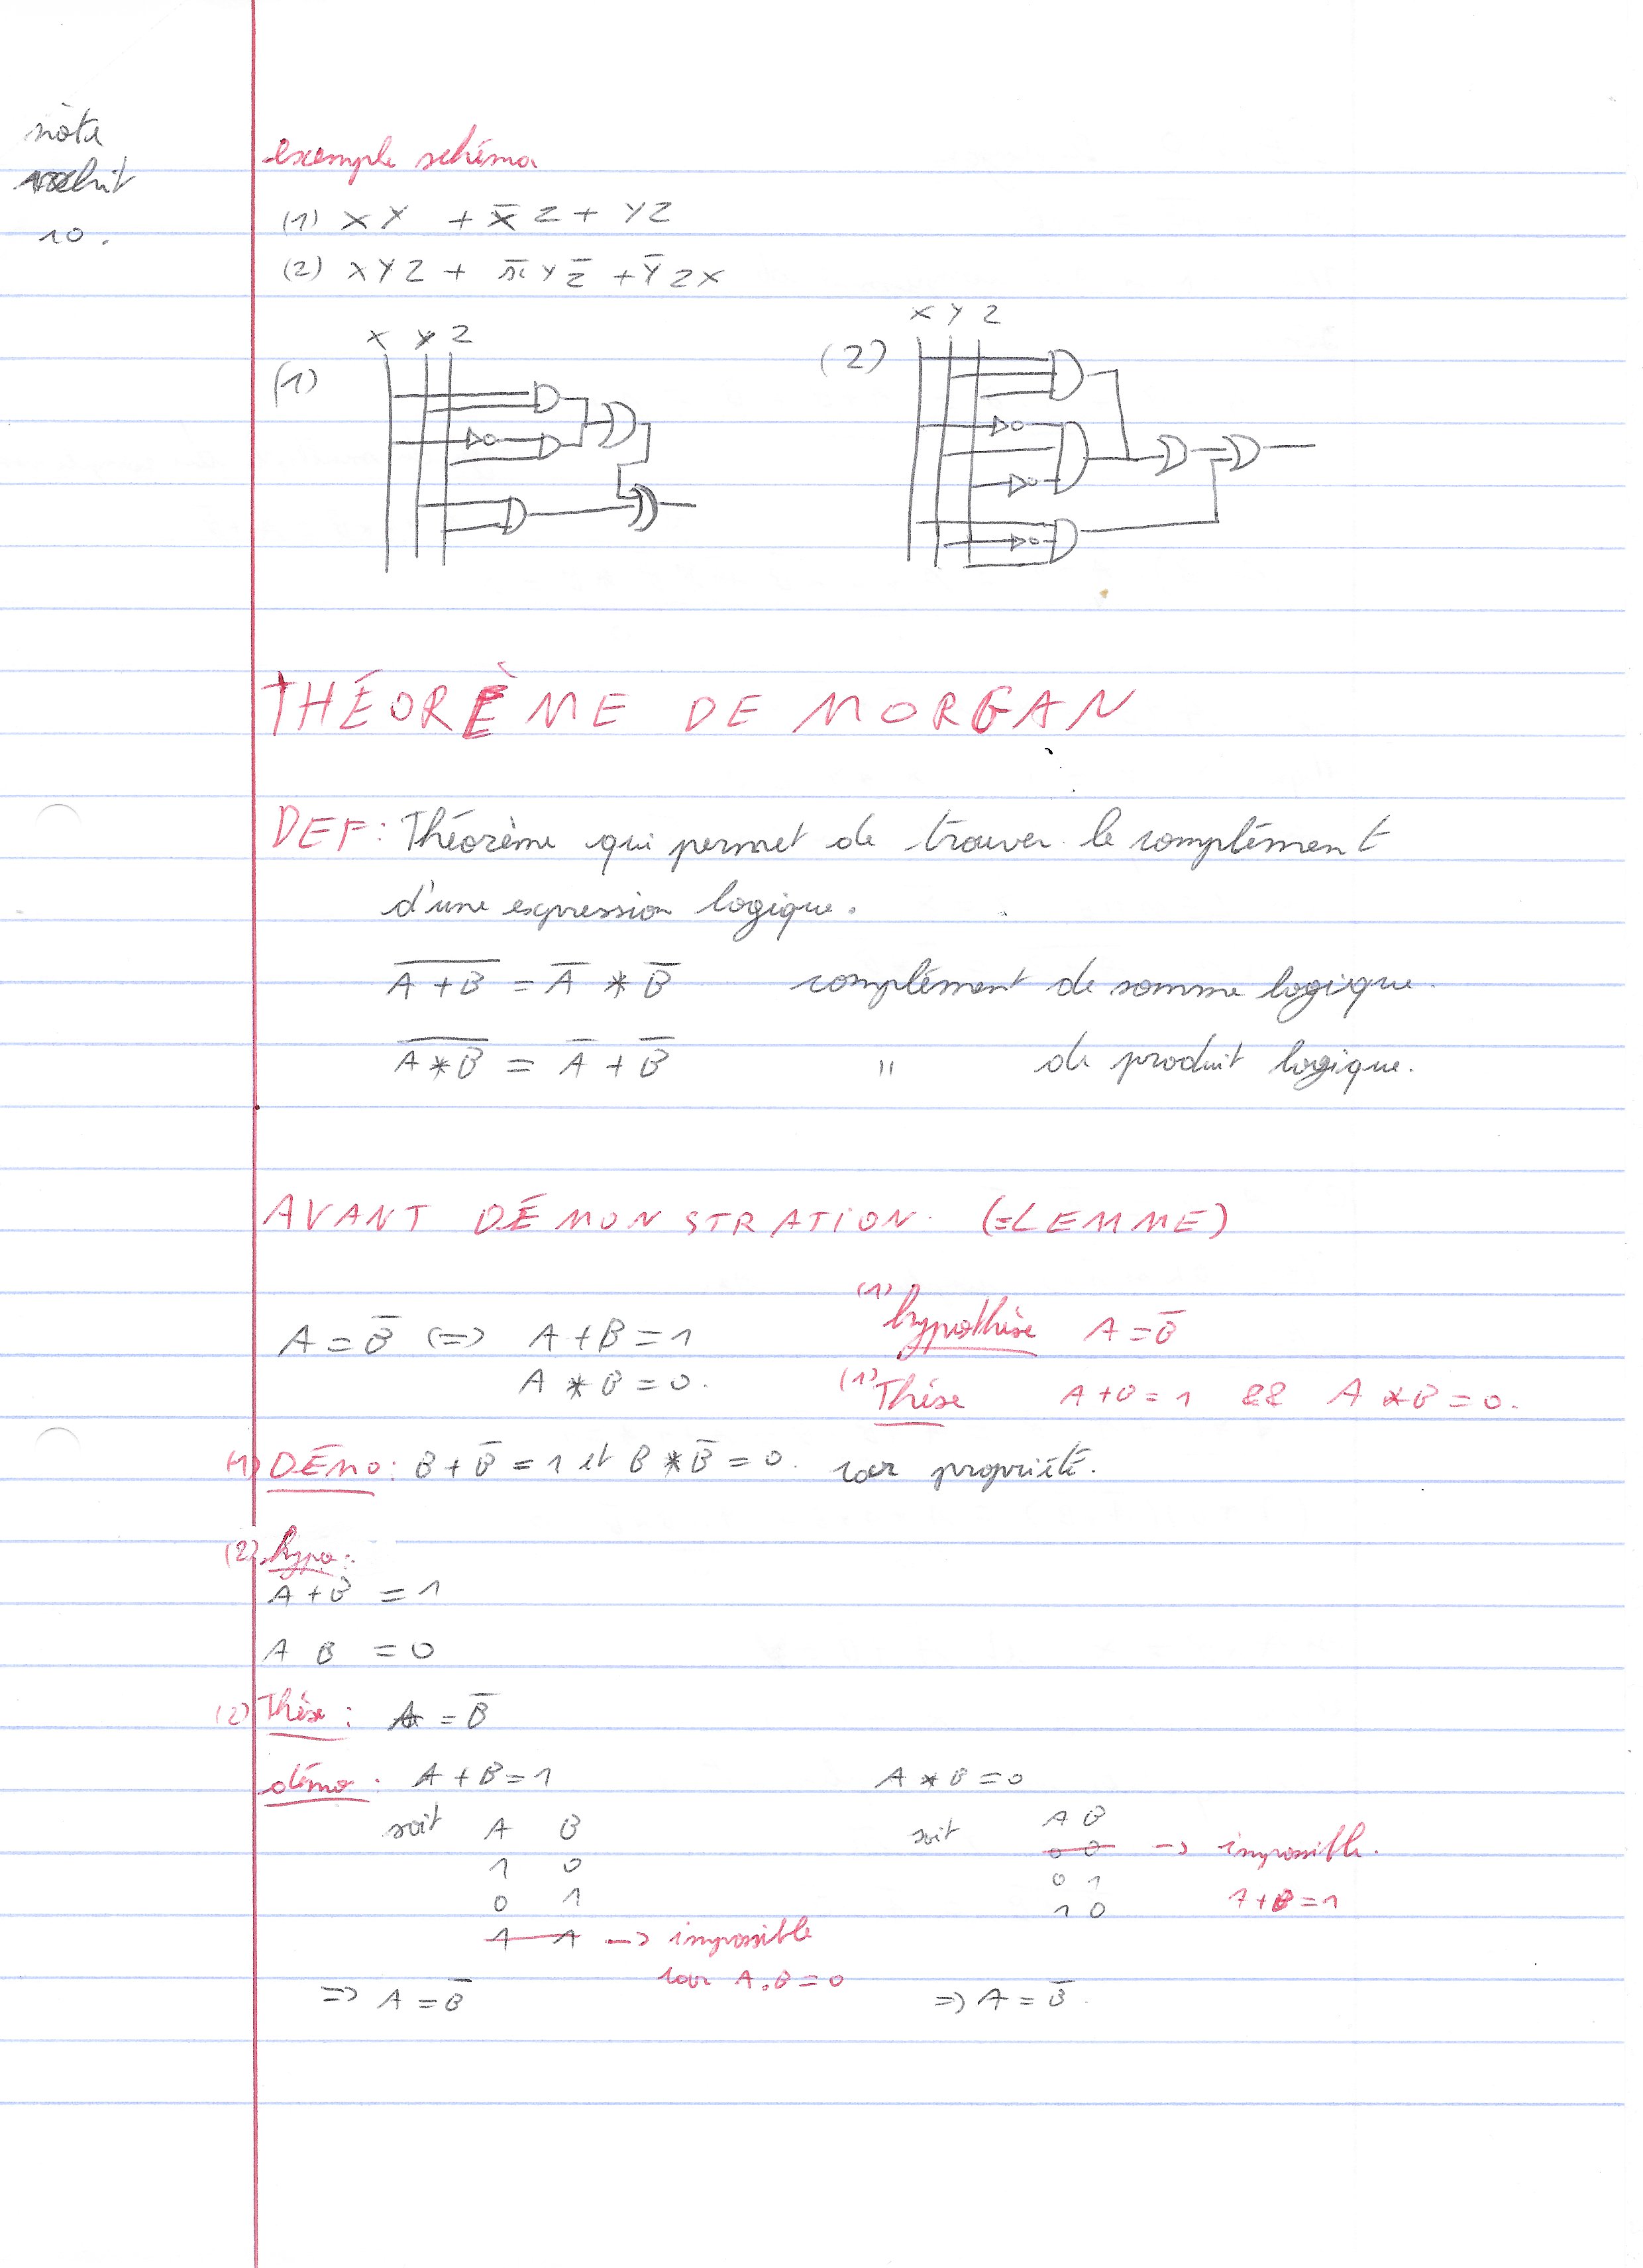 note
10.
exemple schéma
(1) XY + X̅ Z + YZ
(2) XYZ + x̅ Y Z̅ + Y̅ Z X
(1) X Y Z
(2) X Y Z
THÉORÈME DE MORGAN
DEF: Théorème qui permet de trouver le complément
d'une expression logique.
A̅ ̅+̅ ̅B̅ = A̅ * B̅ complément de somme logique.
A̅ ̅*̅ ̅B̅ = A̅ + B̅ " de produit logique.
AVANT DÉMONSTRATION. (=LEMME)
A = B̅ (=) A + B = 1
A * B = 0.
(1) hypothèse A = B̅
(1) Thèse A+B = 1 && A * B = 0.
(1) DÉMO: B + B̅ = 1 et B * B̅ = 0. car propriété.
(2) hypo:
A + B = 1
A B = 0
(2) Thèse: A = B̅
démo: A + B = 1
soit A B
1 0
0 1
1 1 -> impossible
car A.B = 0
=> A = B̅
A * B = 0
soit A B
0 0 -> impossible.
0 1
1 0 A+B = 1
=> A = B̅.